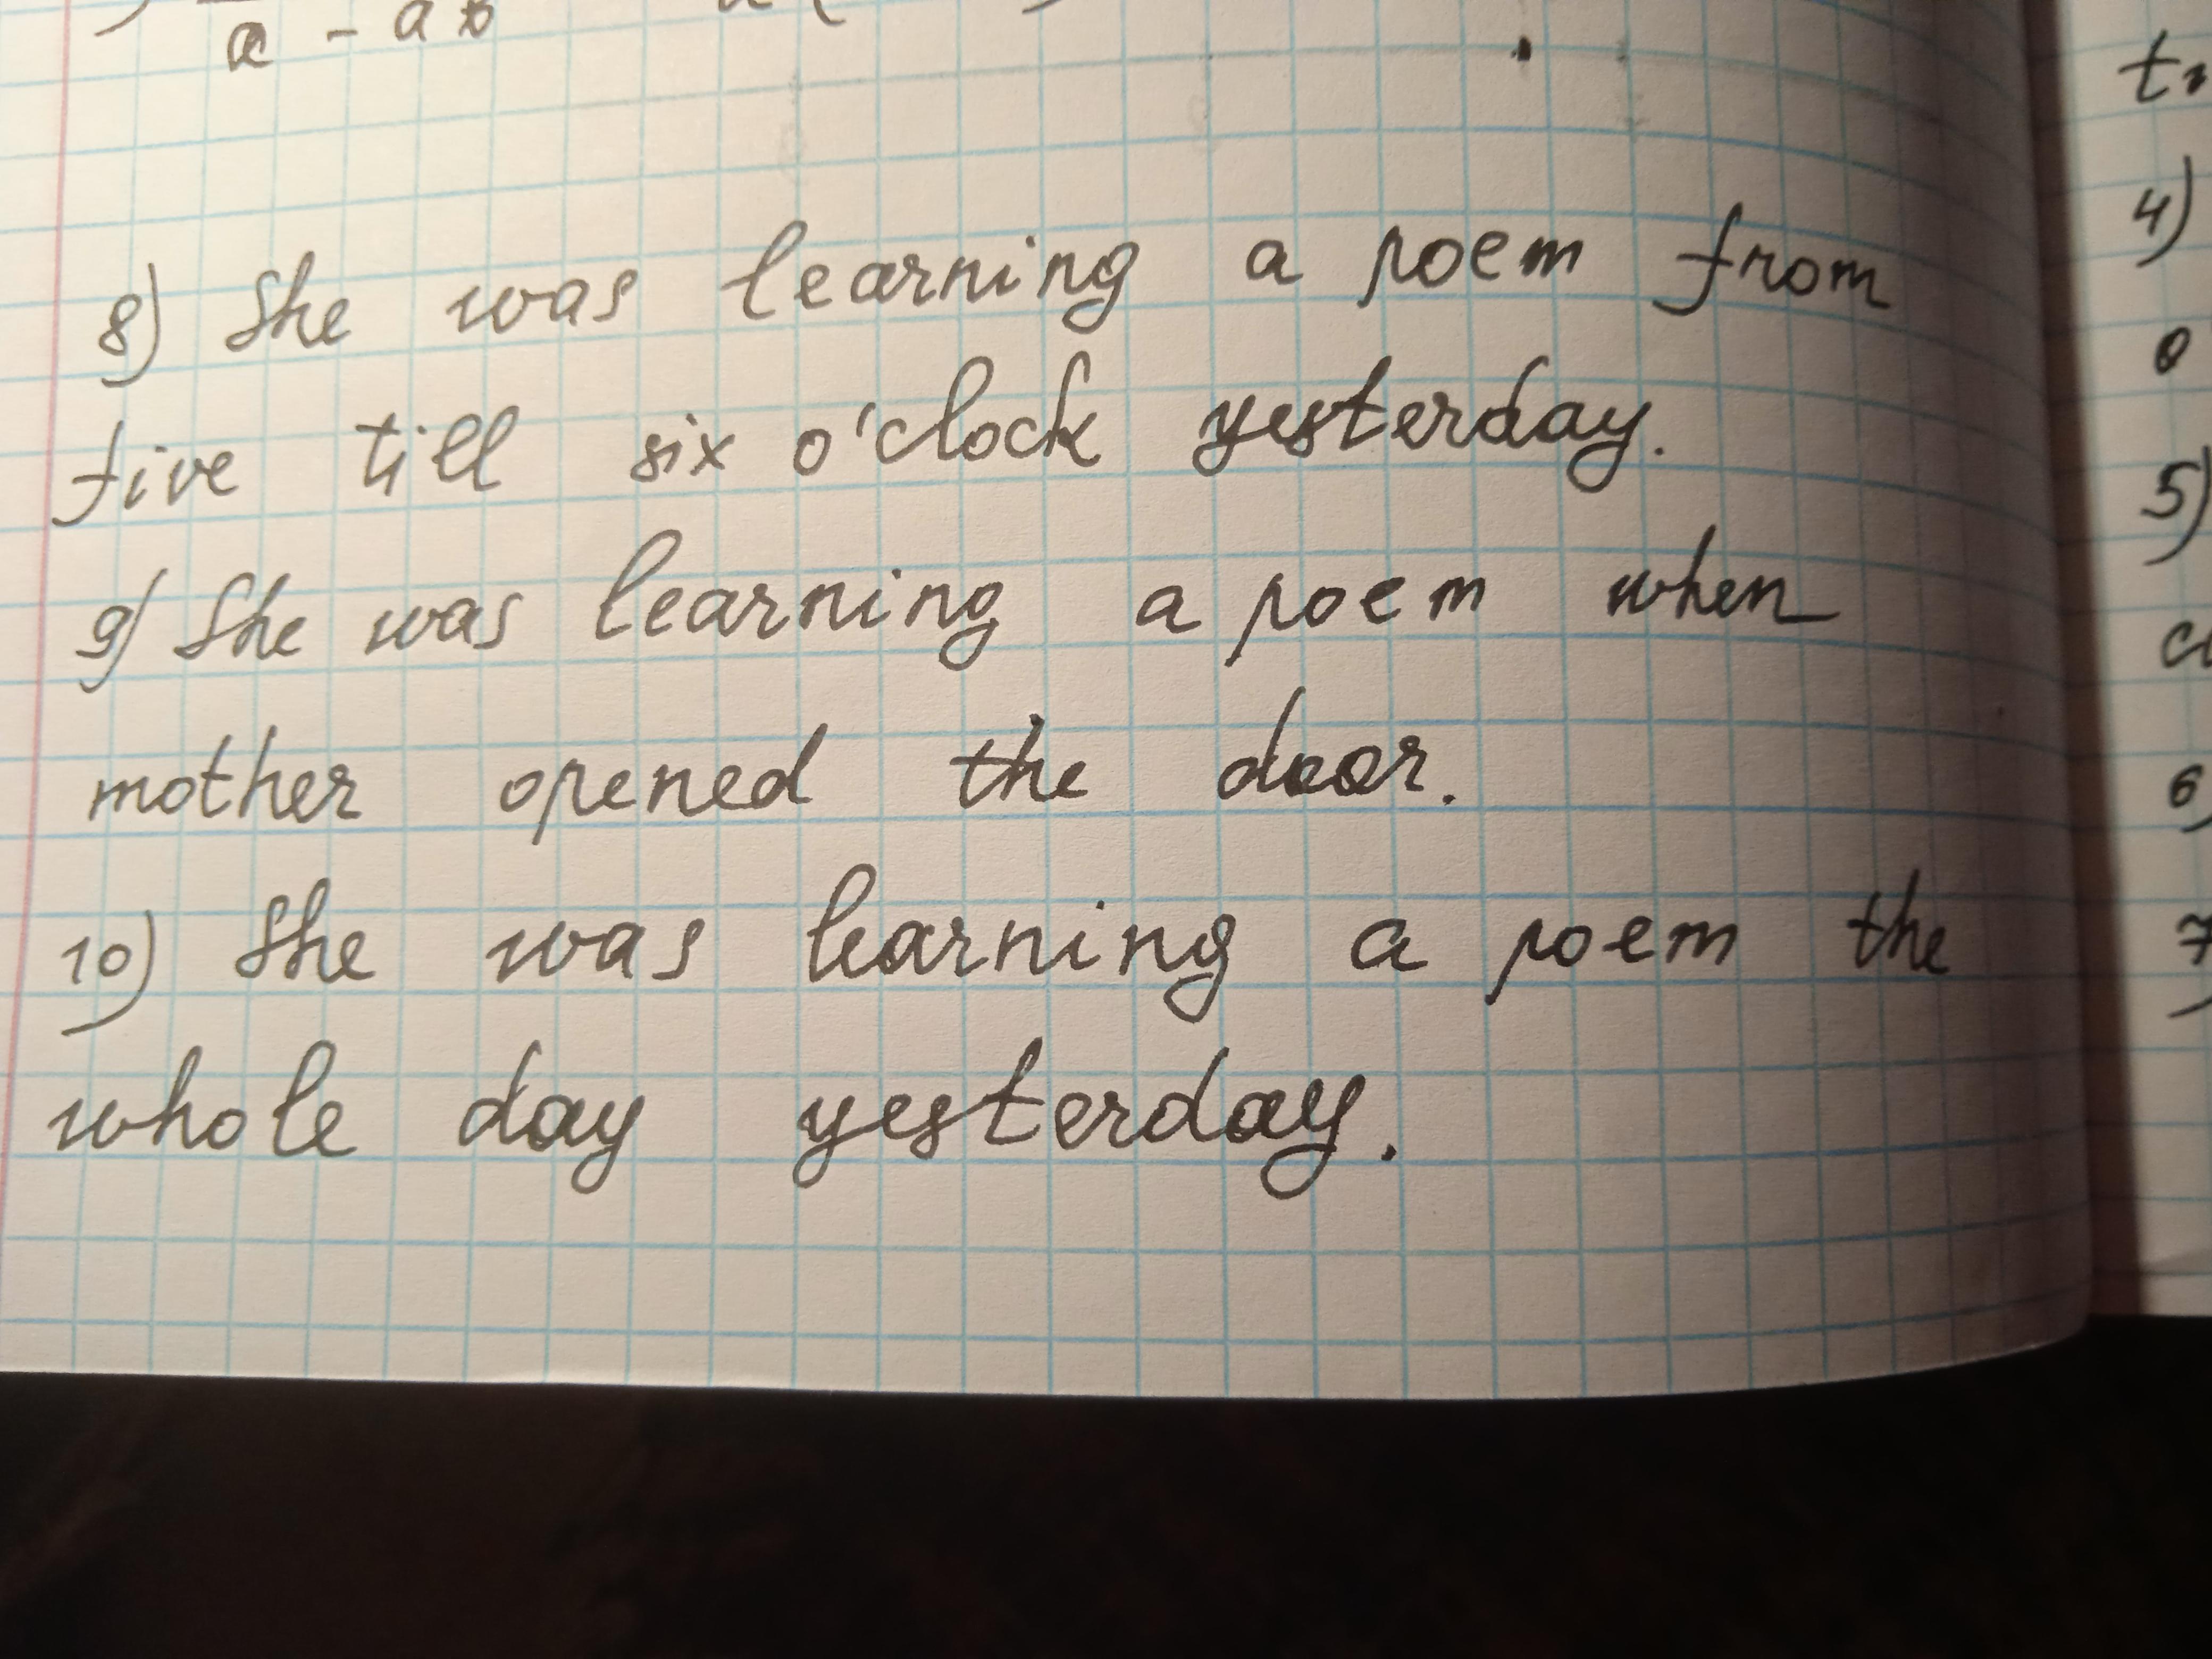 a - ab
8) She was learning a poem from
five till six o'clock yesterday.
9) She was learning a poem when
mother opened the door.
10) She was learning a poem the
whole day yesterday.
4)
5)
6)
7)